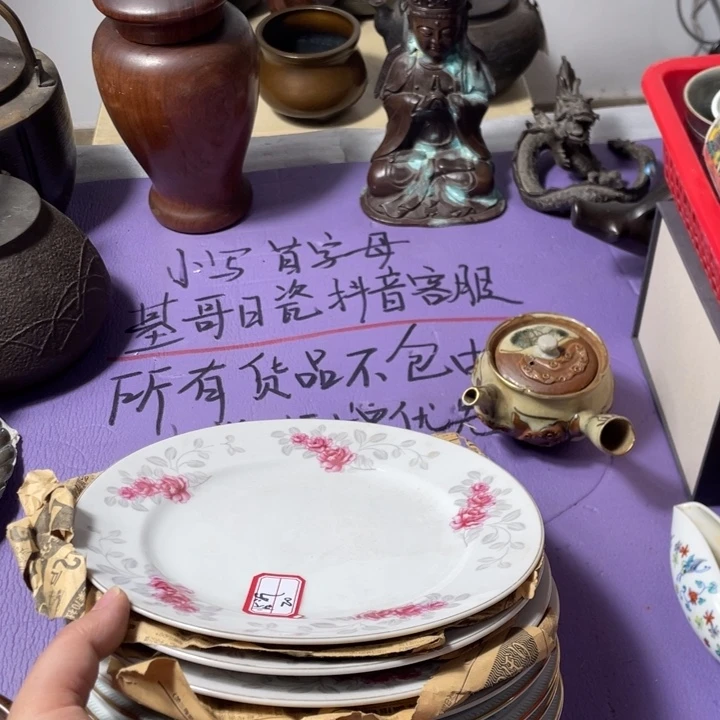 小写首字母
基哥日瓷抖音客服
所有货品不包
优先
20